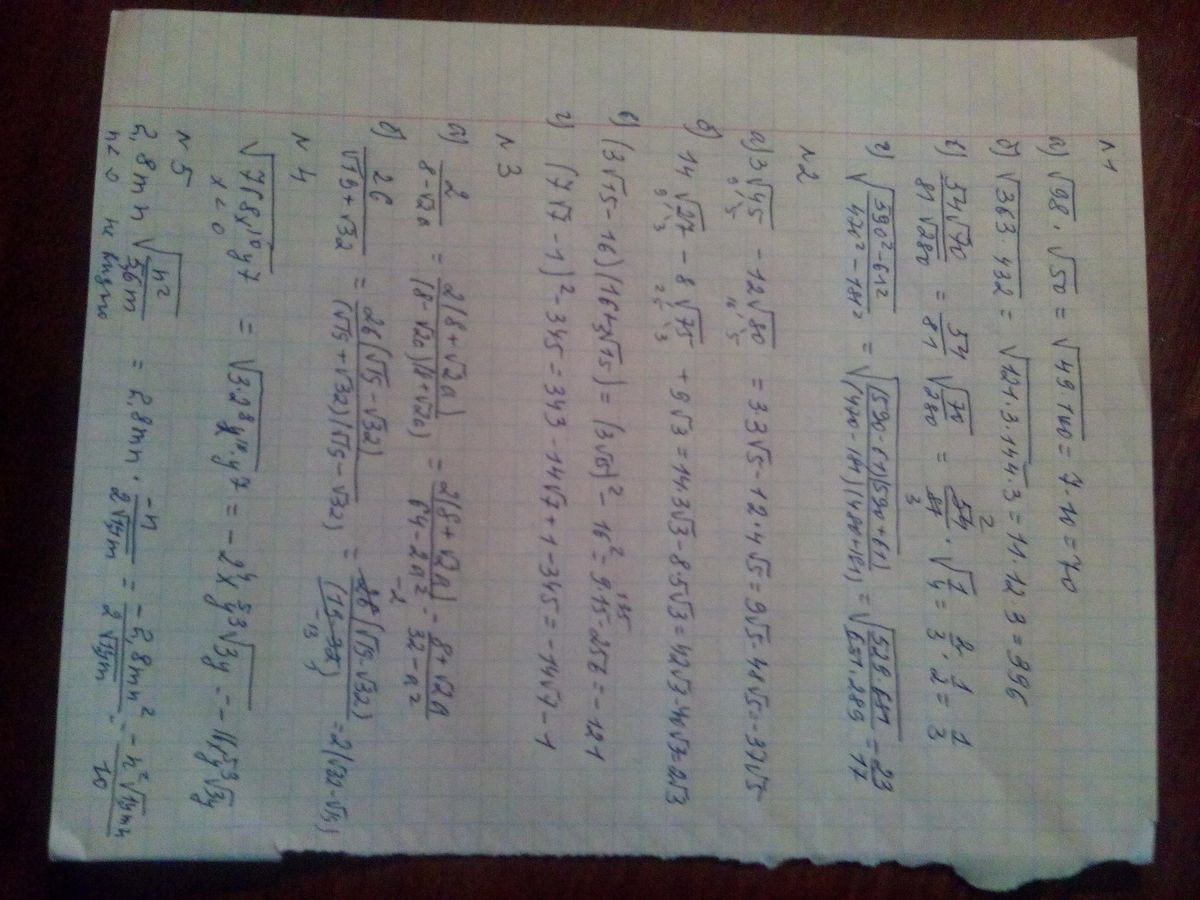 N1
а) √98 · √50 = √49·100 = 7·10 = 70
б) √363·432 = √121·3·144·3 = 11·12·3 = 396
в) 54√70 / 81√280 = 54/81 √70/280 = 54/81 · √1/4 = 2/3 · 1/2 = 1/3
г) √(590²-61²)/(470²-181²) = √(590-61)(590+61)/(470-181)(470+181) = √529·651/651·289 = 23/17
N2
а) 3√45 - 12√80 = 3·3√5 - 12·4√5 = 9√5 - 48√5 = -39√5
б) 14√27 - 8√75 + 9√3 = 14·3√3 - 8·5√3 = 42√3-40√3=2√3
в) (3√15-16)(16+3√15) = (3√15)² - 16² = 9·15-256 = -121
г) (7√7-1)² - 345 = 343 - 14√7 + 1 - 345 = -14√7 - 1
N3
а) 2/(8-√2a) = 2(8+√2a)/(8-√2a)(8+√2a) = 2(8+√2a)/(64-2a²) = (8+√2a)/(32-a²)
б) 26/(√15+√32) = 26(√15-√32)/(√15+√32)(√15-√32) = 26(√15-√32)/(15-32)
N4
√768x¹⁰y⁷
x<0
N5
2,8mn √n²/5,6m
n<0